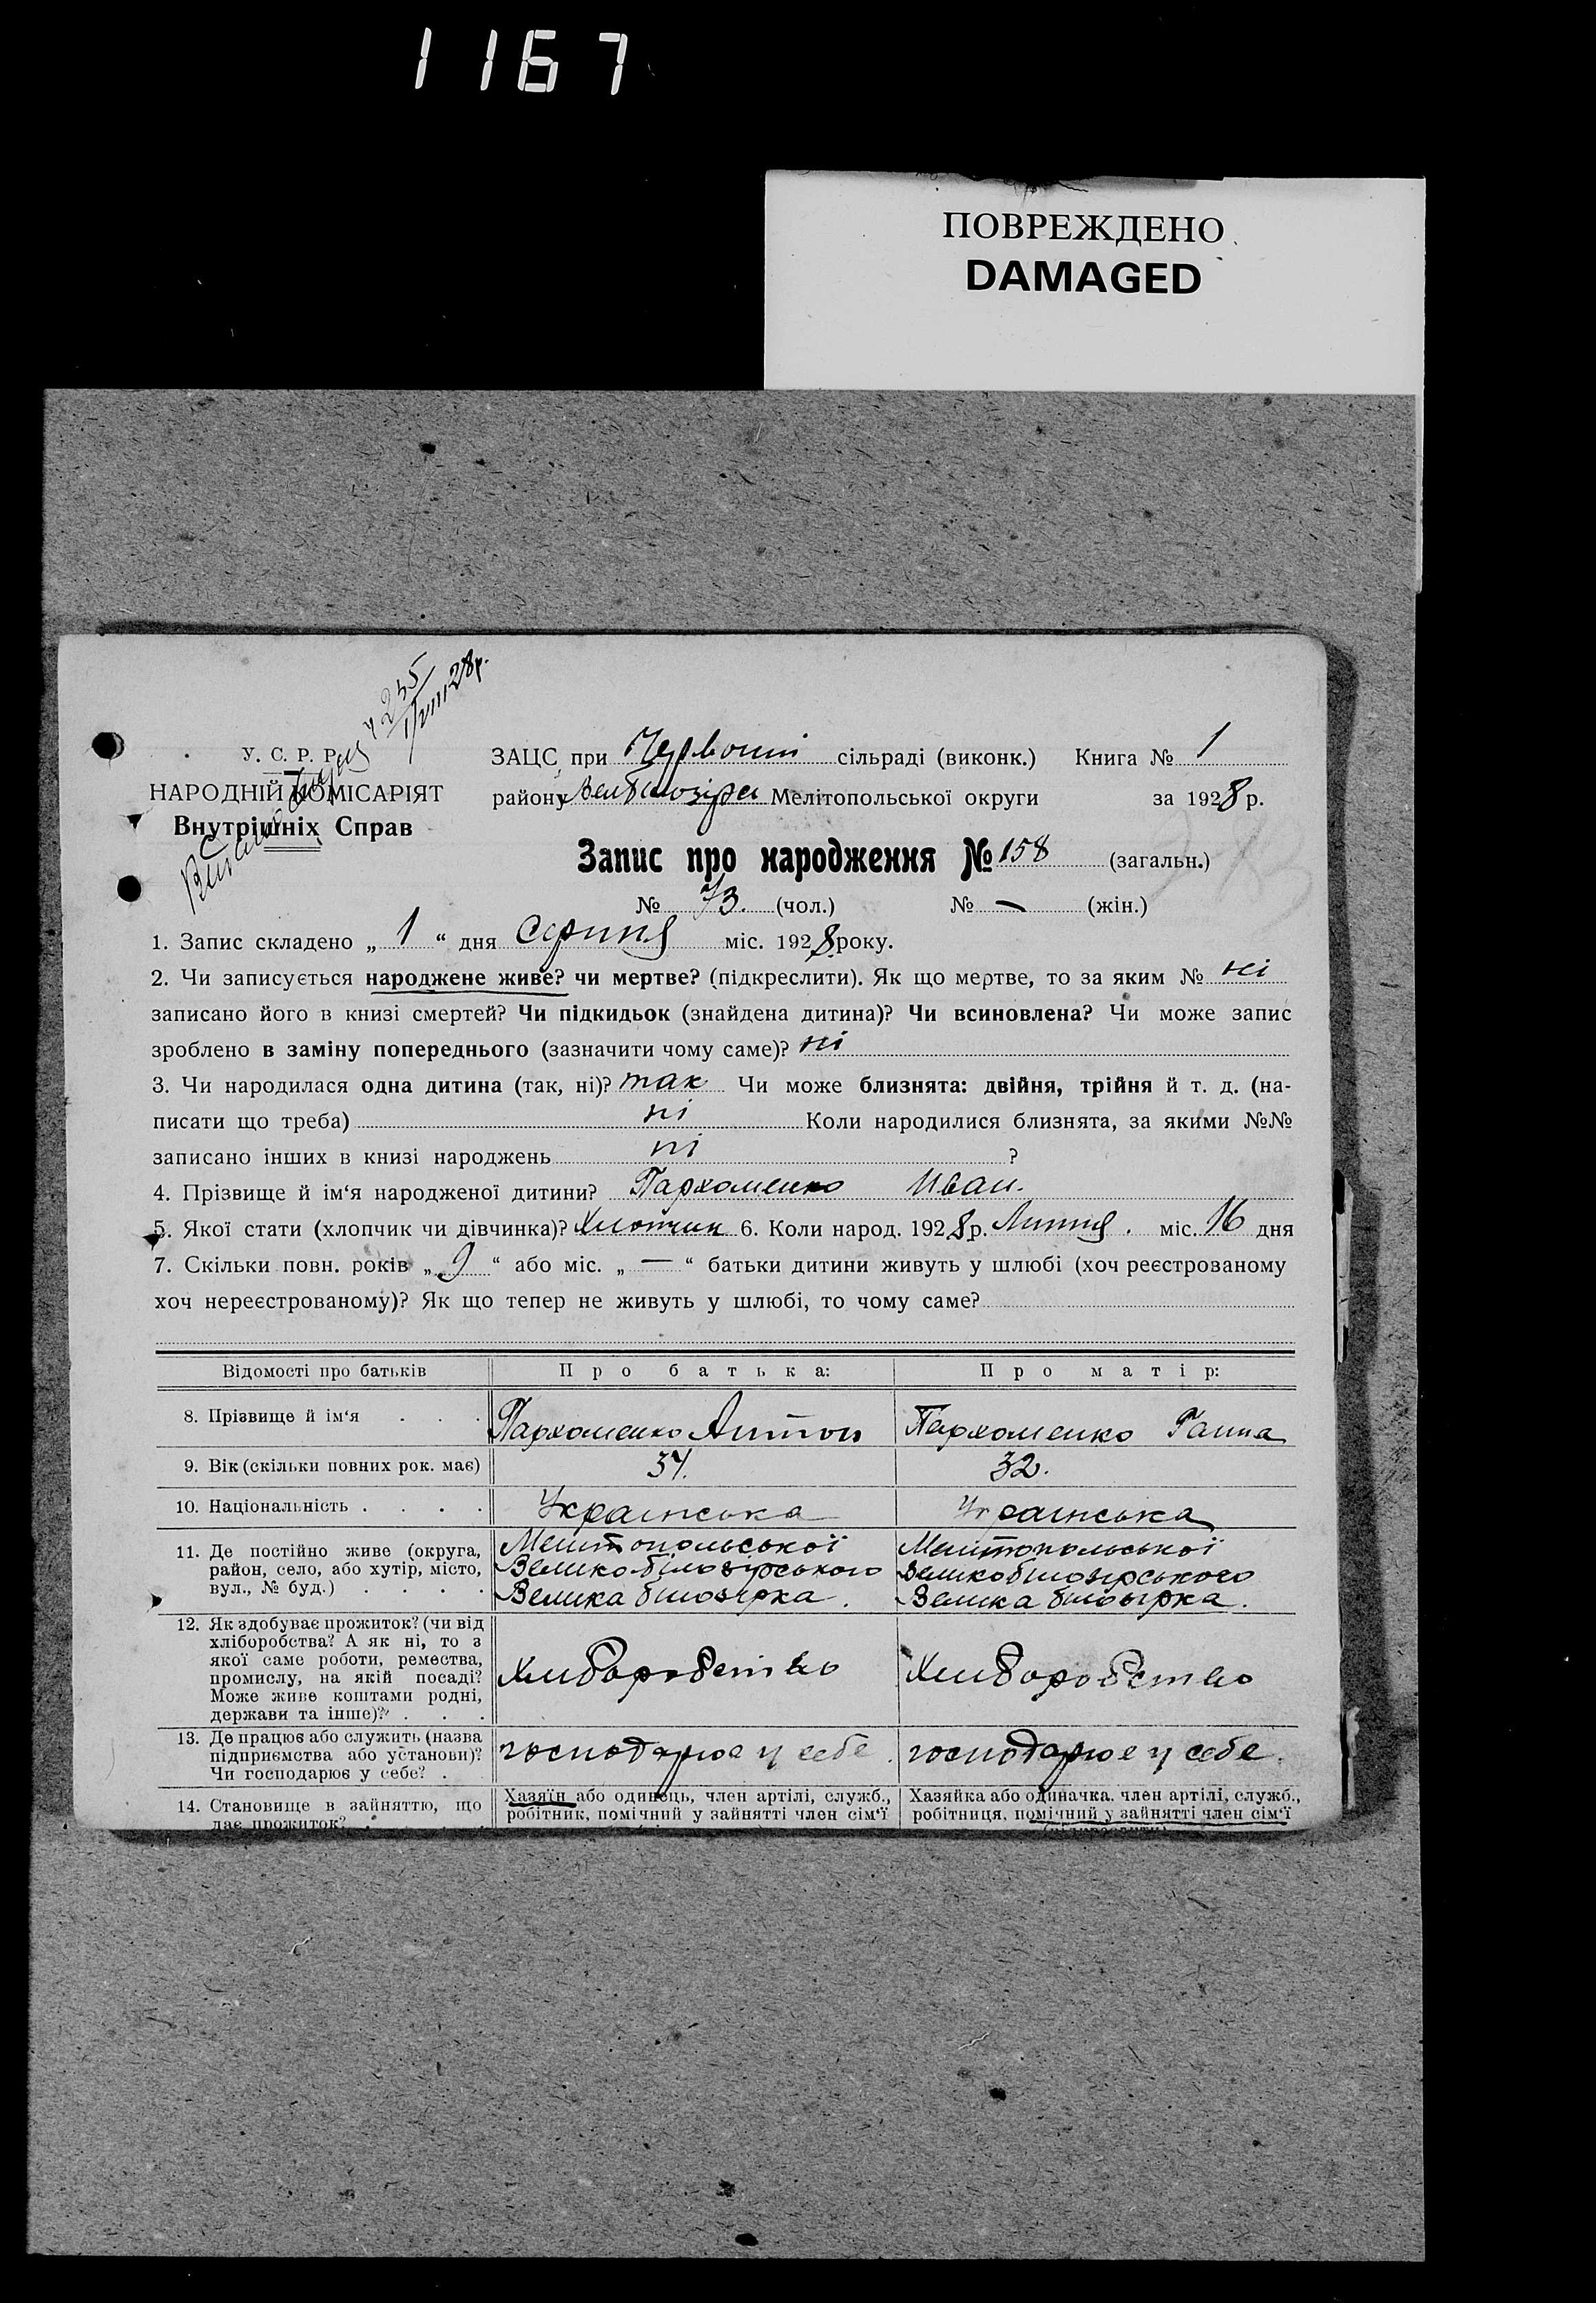 1167
ПОВРЕЖДЕНО
DAMAGED
235
1/VIII 28р.
У. С. Р. Р.
НАРОДНІЙ КОМІСАРІЯТ
Внутрішніх Справ
ЗАЦС при Червоній сільраді (виконк.) Книга № 1
району Мелітопольської округи за 1928 р.
Запис про народження № 158 (загальн.)
№ 73. (чол.) № — (жін.)
1. Запис складено „ 1 “ дня Серпня міс. 1928 року.
2. Чи записується народжене живе? чи мертве? (підкреслити). Як що мертве, то за яким № ні
записано його в книзі смертей? Чи підкидьок (знайдена дитина)? Чи всиновлена? Чи може запис
зроблено в заміну попереднього (зазначити чому саме)? ні
3. Чи народилася одна дитина (так, ні)? так Чи може близнята: двійня, трійня й т. д. (на-
писати що треба) ні Коли народилися близнята, за якими №№
записано інших в книзі народжень ні ?
4. Прізвище й ім‘я народженої дитини? Пархоменко Иван.
5. Якої стати (хлопчик чи дівчинка)? Хлопчик 6. Коли народ. 1928 р. Липня. міс. 16 дня
7. Скільки повн. років „ 9 “ або міс. „ — “ батьки дитини живуть у шлюбі (хоч реєстрованому
хоч нереєстрованому)? Як що тепер не живуть у шлюбі, то чому саме?
Відомості про батьків Про батька: Про матір:
8. Прізвище й ім‘я . . . Пархоменко Антон Пархоменко Ганна
9. Вік (скільки повних рок. має) 34. 32.
10. Національність . . . . Українська Українська
11. Де постійно живе (округа, Мелітопольської Мелітопольської
район, село, або хутір, місто, Великобілозірського Великобілозірського
вул., № буд.) . . . . Велика білозірка. Велика білозірка.
12. Як здобуває прожиток? (чи від
хліборобства? А як ні, то з
якої саме роботи, ремества,
промислу, на якій посаді? Хліборобство Хліборобство
Може живе коштами родні,
держави та інше)? . . .
13. Де працює або служить (назва господарює у себе. господарює у себе.
підприємства або установи)?
Чи господарює у себе? .
14. Становище в зайняттю, що Хазяїн або одинець, член артілі, служб., Хазяйка або одиначка, член артілі, служб.,
дає прожиток? . робітник, помічний у зайнятті член сім‘ї робітниця, помічний у зайнятті член сім‘ї